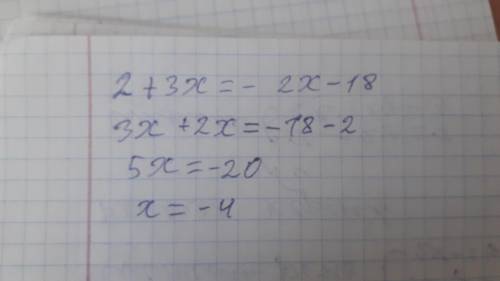 2 + 3x = - 2x - 18
3x + 2x = -18 - 2
5x = -20
x = -4